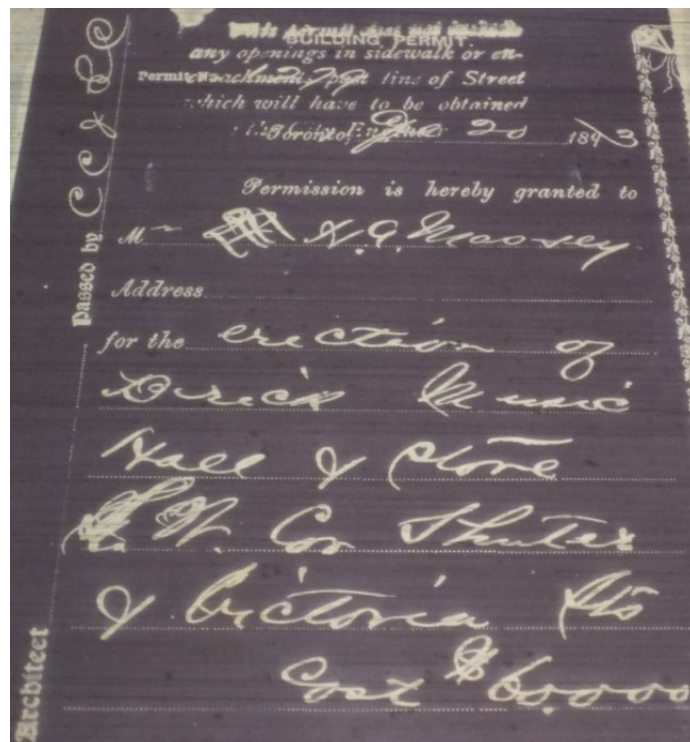 BUILDING PERMIT.
any openings in sidewalk or en-
Permit No croachment past line of Street
which will have to be obtained
Toronto, 20 1893
Permission is hereby granted to
Mr H. A. Massey
Address
for the erection of
Brick Music
Hall & store
W. Cor Shuter
& Victoria Sts
Cost $60,000
Passed by C C & L C
Architect